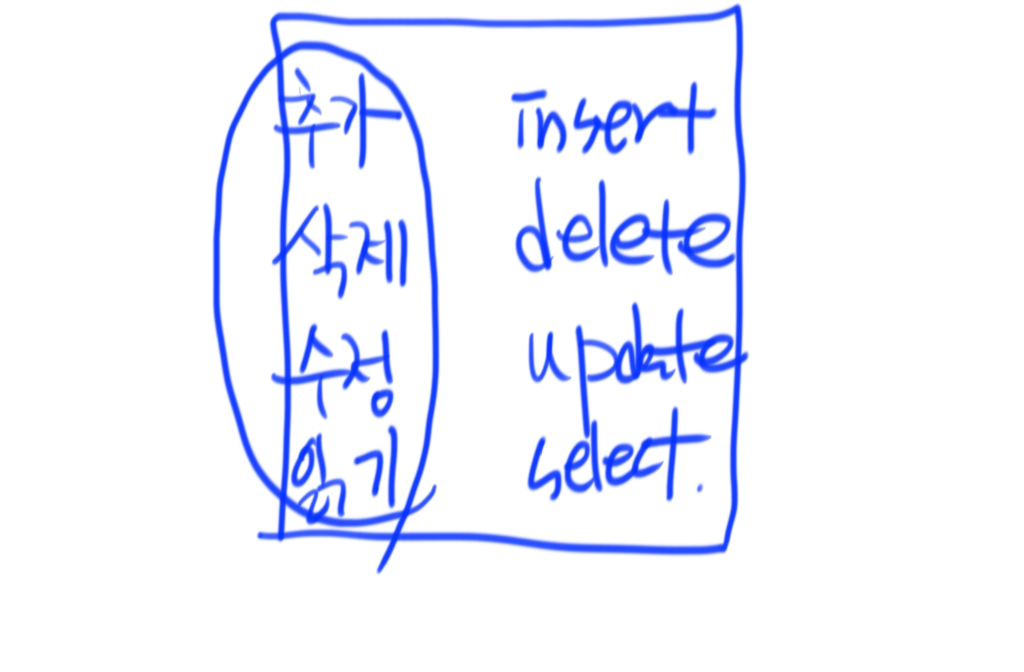 추가 insert
삭제 delete
수정 update
읽기 select.